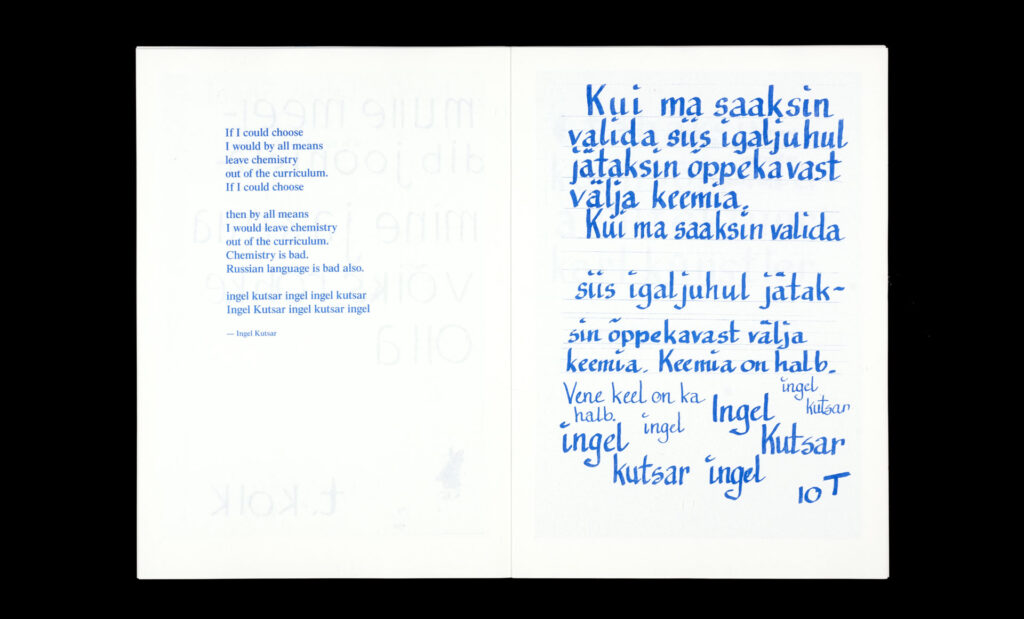 If I could choose
I would by all means
leave chemistry
out of the curriculum.
If I could choose
then by all means
I would leave chemistry
out of the curriculum.
Chemistry is bad.
Russian language is bad also.
ingel kutsar ingel ingel kutsar
Ingel Kutsar ingel kutsar ingel
— Ingel Kutsar
Kui ma saaksin
valida siis igaljuhul
jätaksin õppekavast
välja keemia.
Kui ma saaksin valida
siis igaljuhul jätak-
sin õppekavast välja
keemia. Keemia on halb.
Vene keel on ka
halb.
ingel
kutsar
ingel
Ingel
ingel
Kutsar
kutsar ingel
10T